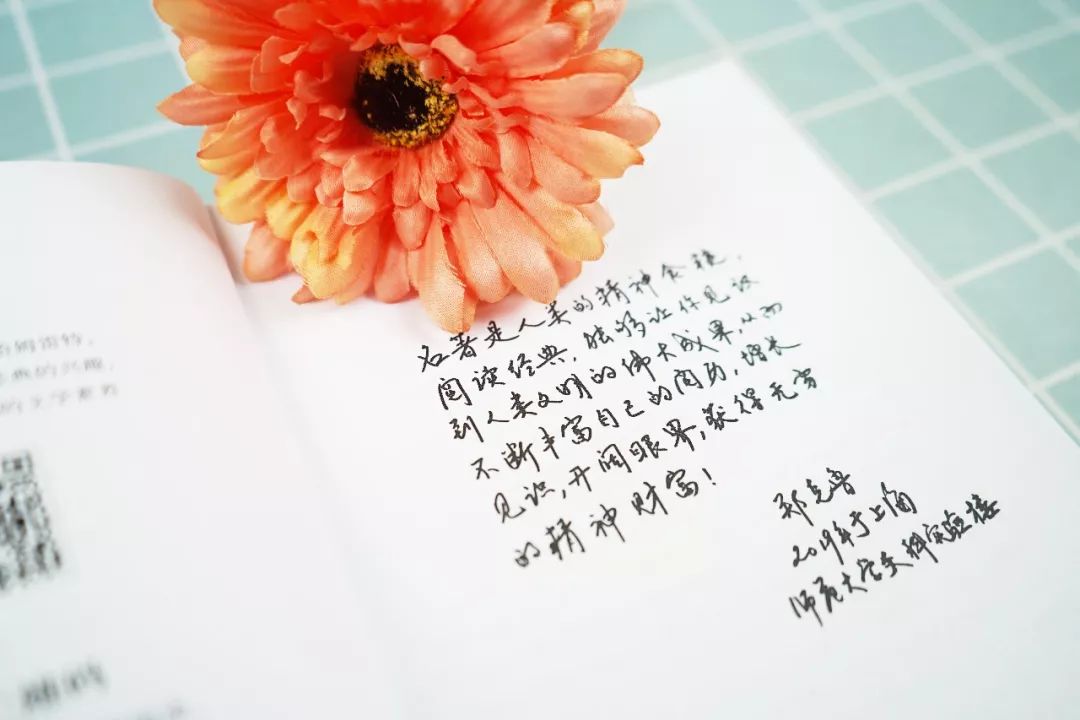 名著是人类的精神食粮，
阅读经典，能够让你见识
到人类文明的伟大成果，从而
不断丰富自己的阅历，增长
见识，开阔眼界，获得无穷
的精神财富！
郑克鲁
2019年于上海
师范大学文科实验楼